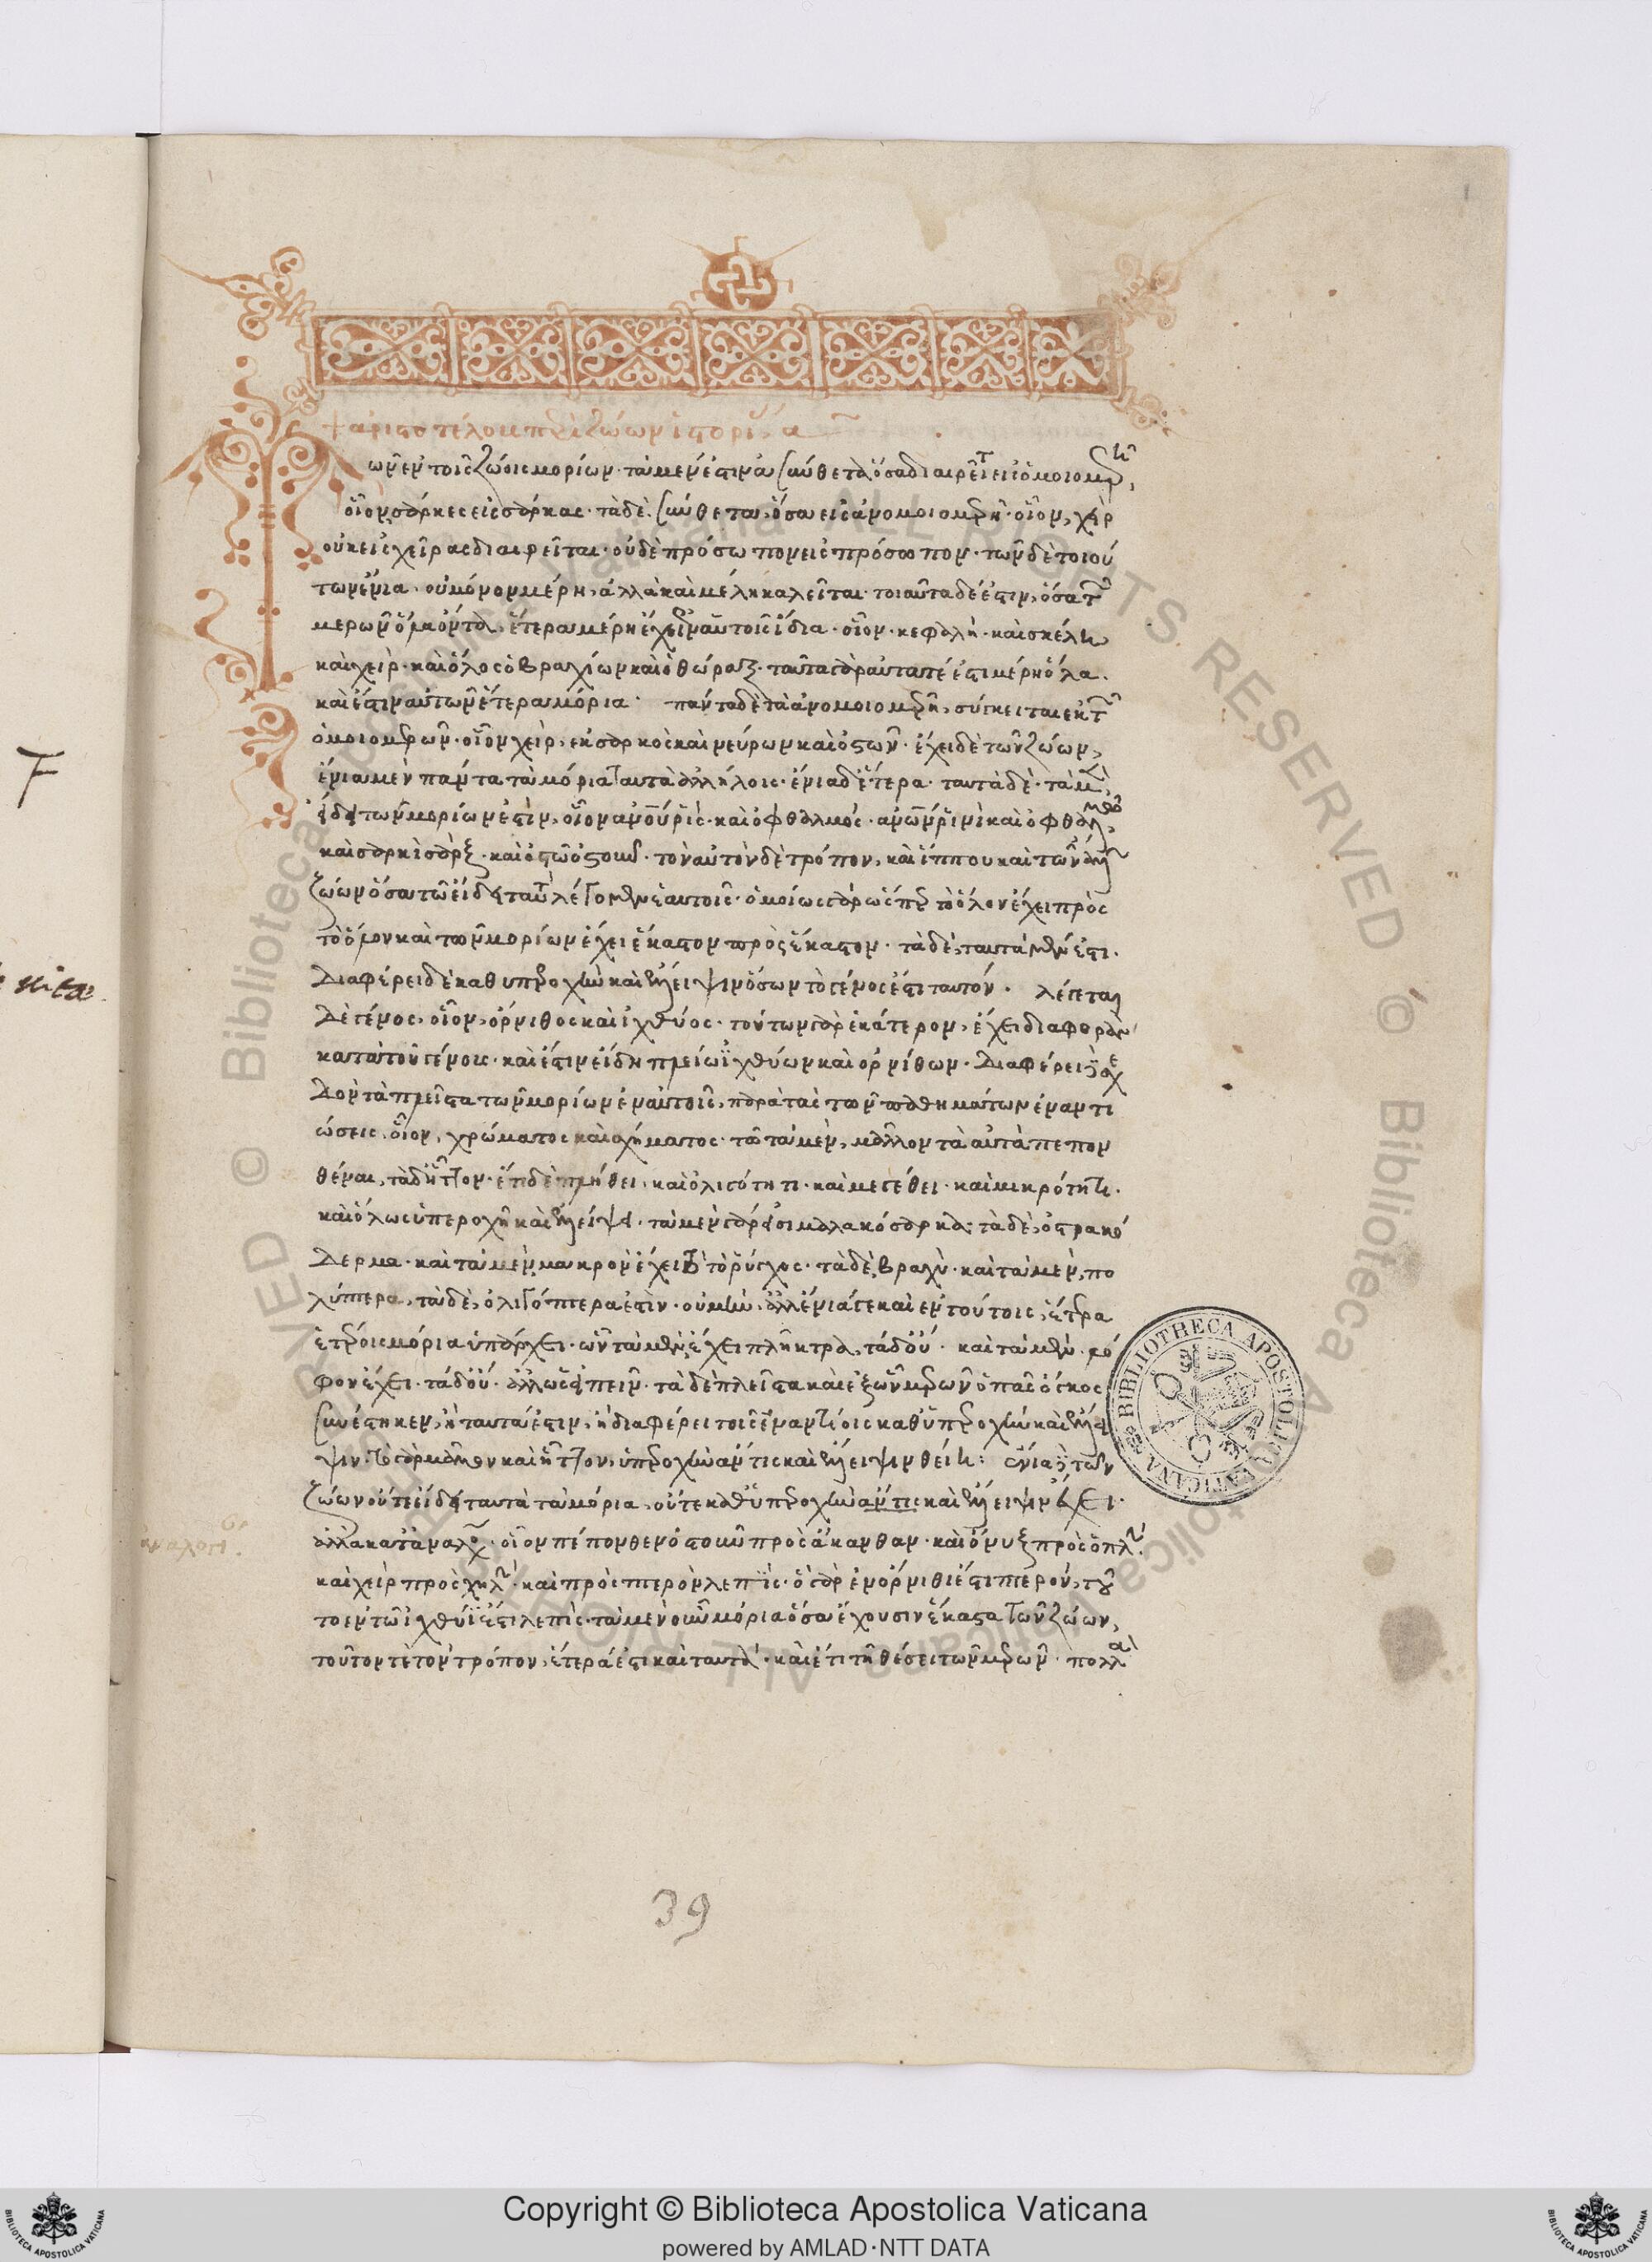 + ἀριστοτέλους περὶ ζώων ἱστορι α
ων ἐν τοῖς ζώοις μορίων· τὰ μέν ἐστιν ἀσύνθετα ὅσα διαιρεῖται εἰς ὁμοιομερῆ,
οἷον σάρκες εἰς σάρκας· τὰ δὲ σύνθετα, ὅσα εἰς ἀνομοιομερῆ· οἷον, χεὶρ
οὐκ εἰς χεῖρας διαιρεῖται· οὐδὲ πρόσωπον εἰς πρόσωπον· τῶν δὲ τοιού
των ἔνια, οὐ μόνον μέρη, ἀλλὰ καὶ μέλη καλεῖται· τοιαῦτα δέ ἐστιν, ὅσα τῶν
μερῶν ὅλα ὄντα, ἕτερα μέρη ἔχει ἐν αὑτοῖς ἴδια· οἷον κεφαλή· καὶ σκέλη
καὶ χείρ· καὶ ὅλος ὁ βραχίων καὶ ὁ θώραξ· ταῦτα γὰρ αὐτά τέ ἐστι μέρη ὅλα.
καὶ ἔστιν αὐτῶν ἕτερα μόρια· πάντα δὲ τὰ ἀνομοιομερῆ, σύγκειται ἐκ τῶν
ὁμοιομερῶν· οἷον χείρ, ἐκ σαρκὸς καὶ νεύρων καὶ ὀστῶν· ἔχει δὲ τῶν ζώων,
ἔνια μὲν πάντα τὰ μόρια ταυτὰ ἀλλήλοις· ἔνια δ' ἕτερα· ταυτὰ δὲ· τὰ μὲν
εἴδει τῶν μορίων ἐστίν, οἷον ἀνου ῥὶς· καὶ ὀφθαλμός· ἀνων ῥινὶ καὶ ὀφθαλμῶ,
καὶ σαρκὶ σὰρξ· καὶ ὀστῶ ὀστοῦν· τὸν αὐτὸν δὲ τρόπον, καὶ ἵππου καὶ τῶν ἄλλων
ζώων ὅσα τῶ εἴδει ταὐτὰ λέγομεν ἑαυτοῖς· ὁμοίως γὰρ ὥσπερ τὸ ὅλον ἔχει πρὸς
τὸ ὅλον καὶ τῶν μορίων ἔχει ἕκαστον πρὸς ἕκαστον· τὰ δὲ, ταυτὰ μέν ἐστι.
Διαφέρει δὲ καθ' ὑπεροχὴν καὶ ἔλλειψιν ὅσων τὸ γένος ἐστὶ ταυτόν· λέγεται
Δὲ γένος, οἷον, ὄρνιθος καὶ ἰχθύος· τούτων γὰρ ἑκάτερον, ἔχει διαφορὰν
κατὰ τοῦ γένους· καὶ ἔστιν εἴδη πλείω ἰχθύων καὶ ὀρνίθων· Διαφέρει δὲ σχε
Δὸν τὰ πλεῖστα τῶν μορίων ἐν αὑτοῖς, παρὰ τὰς τῶν παθημάτων ἐναντι
ώσεις, οἷον, χρώματος καὶ σχήματος· τῶ τὰ μὲν, μᾶλλον τὰ αὐτὰ πεπον
θέναι, τὰ δ' ἧττον· ἔτι δὲ πλήθει, καὶ ὀλιγότητι· καὶ μεγέθει· καὶ μικρότητι·
καὶ ὅλως ὑπεροχῆ καὶ ἐλλείψει· τὰ μὲν γάρ εἰσι μαλακόσαρκα· τὰ δὲ, ὀστρακό
Δερμα· καὶ τὰ μὲν μακρὸν ἔχει τὸ ῥύγχος· τὰ δὲ βραχύ· καὶ τὰ μὲν, πο
λύπτερα, τὰ δὲ, ὀλιγόπτερα ἐστὶν· οὐ μὴν, ἀλλ' ἔνιά γε καὶ ἐν τούτοις, ἕτερα
ἑτέροις μόρια ὑπάρχει· ὧν τὰ μὲν ἔχει πλῆκτρα, τὰ δ' οὔ· καὶ τὰ μὲν· λό
φον ἔχει· τὰ δ' οὔ· ἀλλ' ὡς εἰπεῖν· τὰ δὲ πλεῖστα καὶ ἐξ ὧν μερῶν ὁ πᾶς ὄγκος
συνέστηκεν, ἢ ταυτά ἐστιν, ἢ διαφέρει τοῖς ἐναντίοις καθ' ὑπεροχὴν καὶ ἔλλει
ψιν· τὸ γὰρ μᾶλλον καὶ ἧττον, ὑπεροχὴν ἄν τις καὶ ἔλλειψιν θείη: ἔνια δὲ τῶν
ζώων οὔτε εἴδει ταυτὰ τὰ μόρια, οὔτε καθ' ὑπεροχὴν ἄν τις καὶ ἔλλειψιν ἔχει·
ἀλλὰ κατ' ἀναλογ· οἷον πέπονθεν ὀστοῦν πρὸς ἄκανθαν· καὶ ὄνυξ πρὸς ὁπλὴν·
καὶ χεὶρ πρὸς χηλὴν· καὶ πρὸς πτερὸν λεπίς· ὃ γὰρ ἐν ὄρνιθι ἐστὶ πτερόν, τοῦ
το ἐν τῶ ἰχθύϊ ἐστὶ λεπίς· τὰ μὲν οὖν μόρια ὅσα ἔχουσιν ἕκαστα τῶν ζώων,
τοῦτόν τε τὸν τρόπον, ἕτερά ἐστι καὶ ταυτά· καὶ ἔτι τῆ θέσει τῶν μερῶν· πολλὰ
39
BIBLIOTHECA APOSTOLICA VATICANA
Copyright © Biblioteca Apostolica Vaticana
powered by AMLAD·NTT DATA